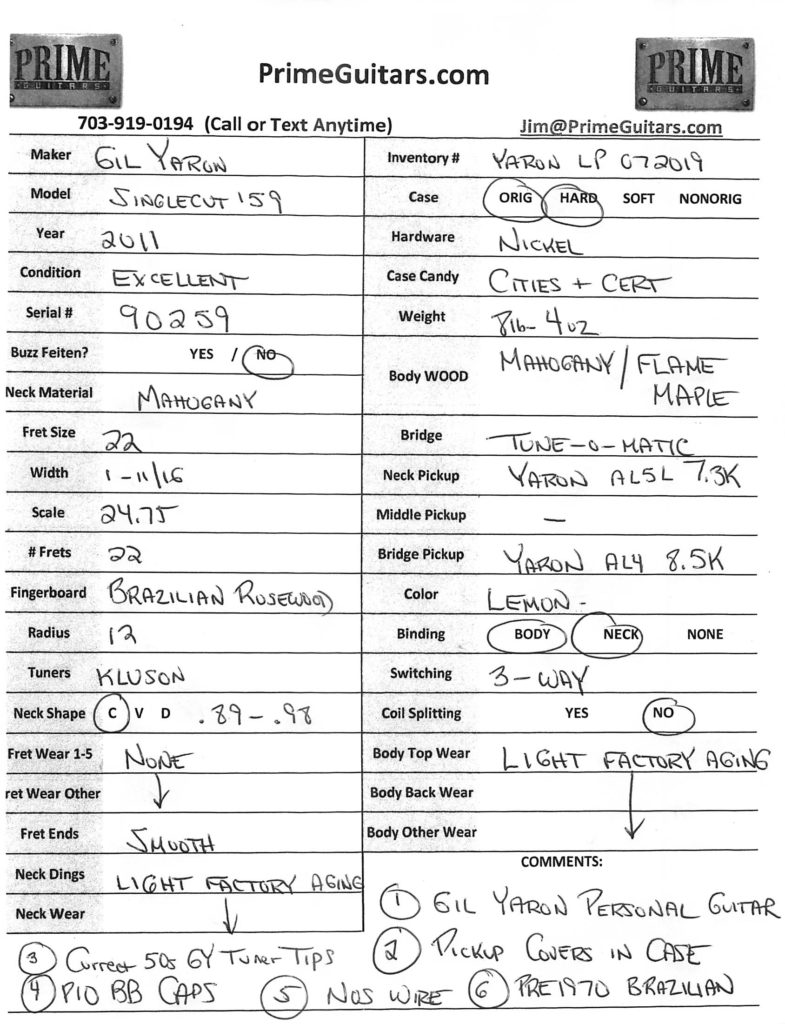 PRIME
GUITARS
PrimeGuitars.com
PRIME
GUITARS
703-919-0194 (Call or Text Anytime)
Jim@PrimeGuitars.com
Maker GIL YARON
Inventory # YARON LP 072019
Model SINGLECUT '59
Case ORIG HARD SOFT NONORIG
Year 2011
Hardware NICKEL
Condition EXCELLENT
Case Candy CITIES + CERT
Serial # 90259
Weight 8lb- 4oz
Buzz Feiten? YES / NO
Body WOOD MAHOGANY / FLAME
MAPLE
Neck Material MAHOGANY
Fret Size 22
Bridge TUNE-O-MATIC
Width 1-11/16
Neck Pickup YARON AL5L 7.3K
Scale 24.75
Middle Pickup —
# Frets 22
Bridge Pickup YARON AL4 8.5K
Fingerboard BRAZILIAN ROSEWOOD
Color LEMON -
Radius 12
Binding BODY NECK NONE
Tuners KLUSON
Switching 3-WAY
Neck Shape C V D .89-.98
Coil Splitting YES NO
Fret Wear 1-5 NONE
Body Top Wear LIGHT FACTORY AGING
ret Wear Other
Body Back Wear
Fret Ends SMOOTH
Body Other Wear
Neck Dings LIGHT FACTORY AGING
Neck Wear
COMMENTS:
1 GIL YARON PERSONAL GUITAR
2 PICKUP COVERS IN CASE
3 Correct 50s GY Tuner TIPS
4 PIO BB CAPS
5 NOS WIRE
6 PRE1970 BRAZILIAN